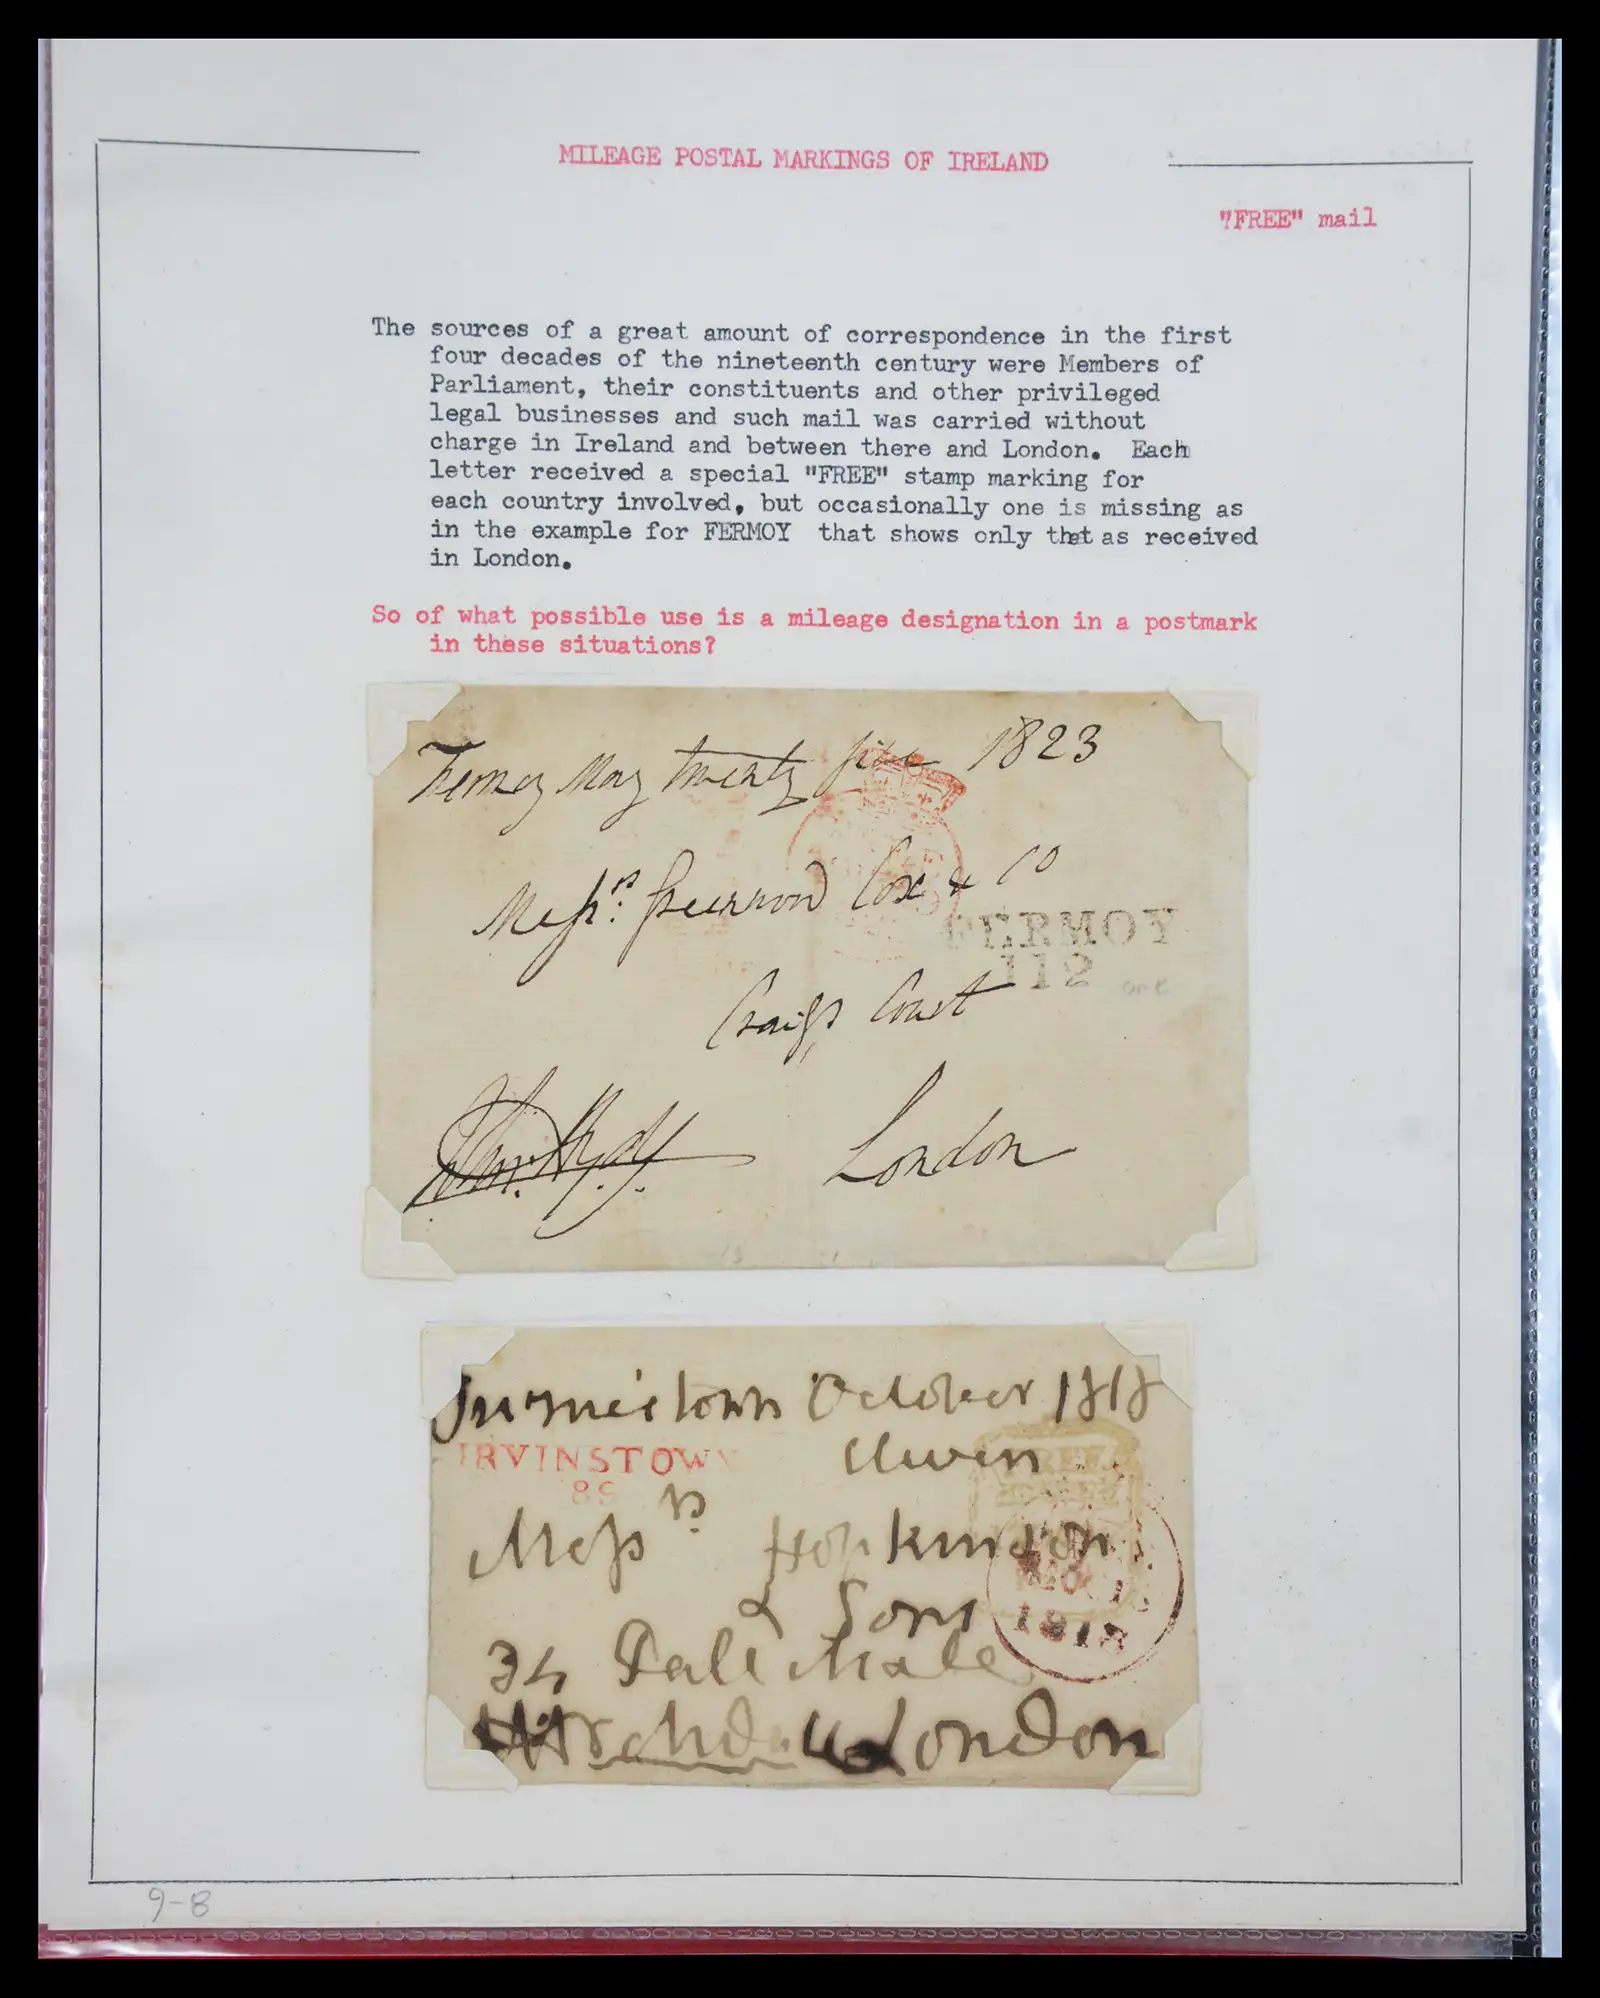 MILEAGE POSTAL MARKINGS OF IRELAND
"FREE" mail
The sources of a great amount of correspondence in the first
four decades of the nineteenth century were Members of
Parliament, their constituents and other privileged
legal businesses and such mail was carried without
charge in Ireland and between there and London. Each
letter received a special "FREE" stamp marking for
each country involved, but occasionally one is missing as
in the example for FERMOY that shows only that as received
in London.
So of what possible use is a mileage designation in a postmark
in these situations?
Fermoy May twenty five 1823
Messrs. Greenwood Cox & Co
FERMOY
112
Craigs Court
London
October 1818
IRVINSTOWN
89
Messrs Hopkinson
& Sons
1818
34 Pall Male
London
9-8